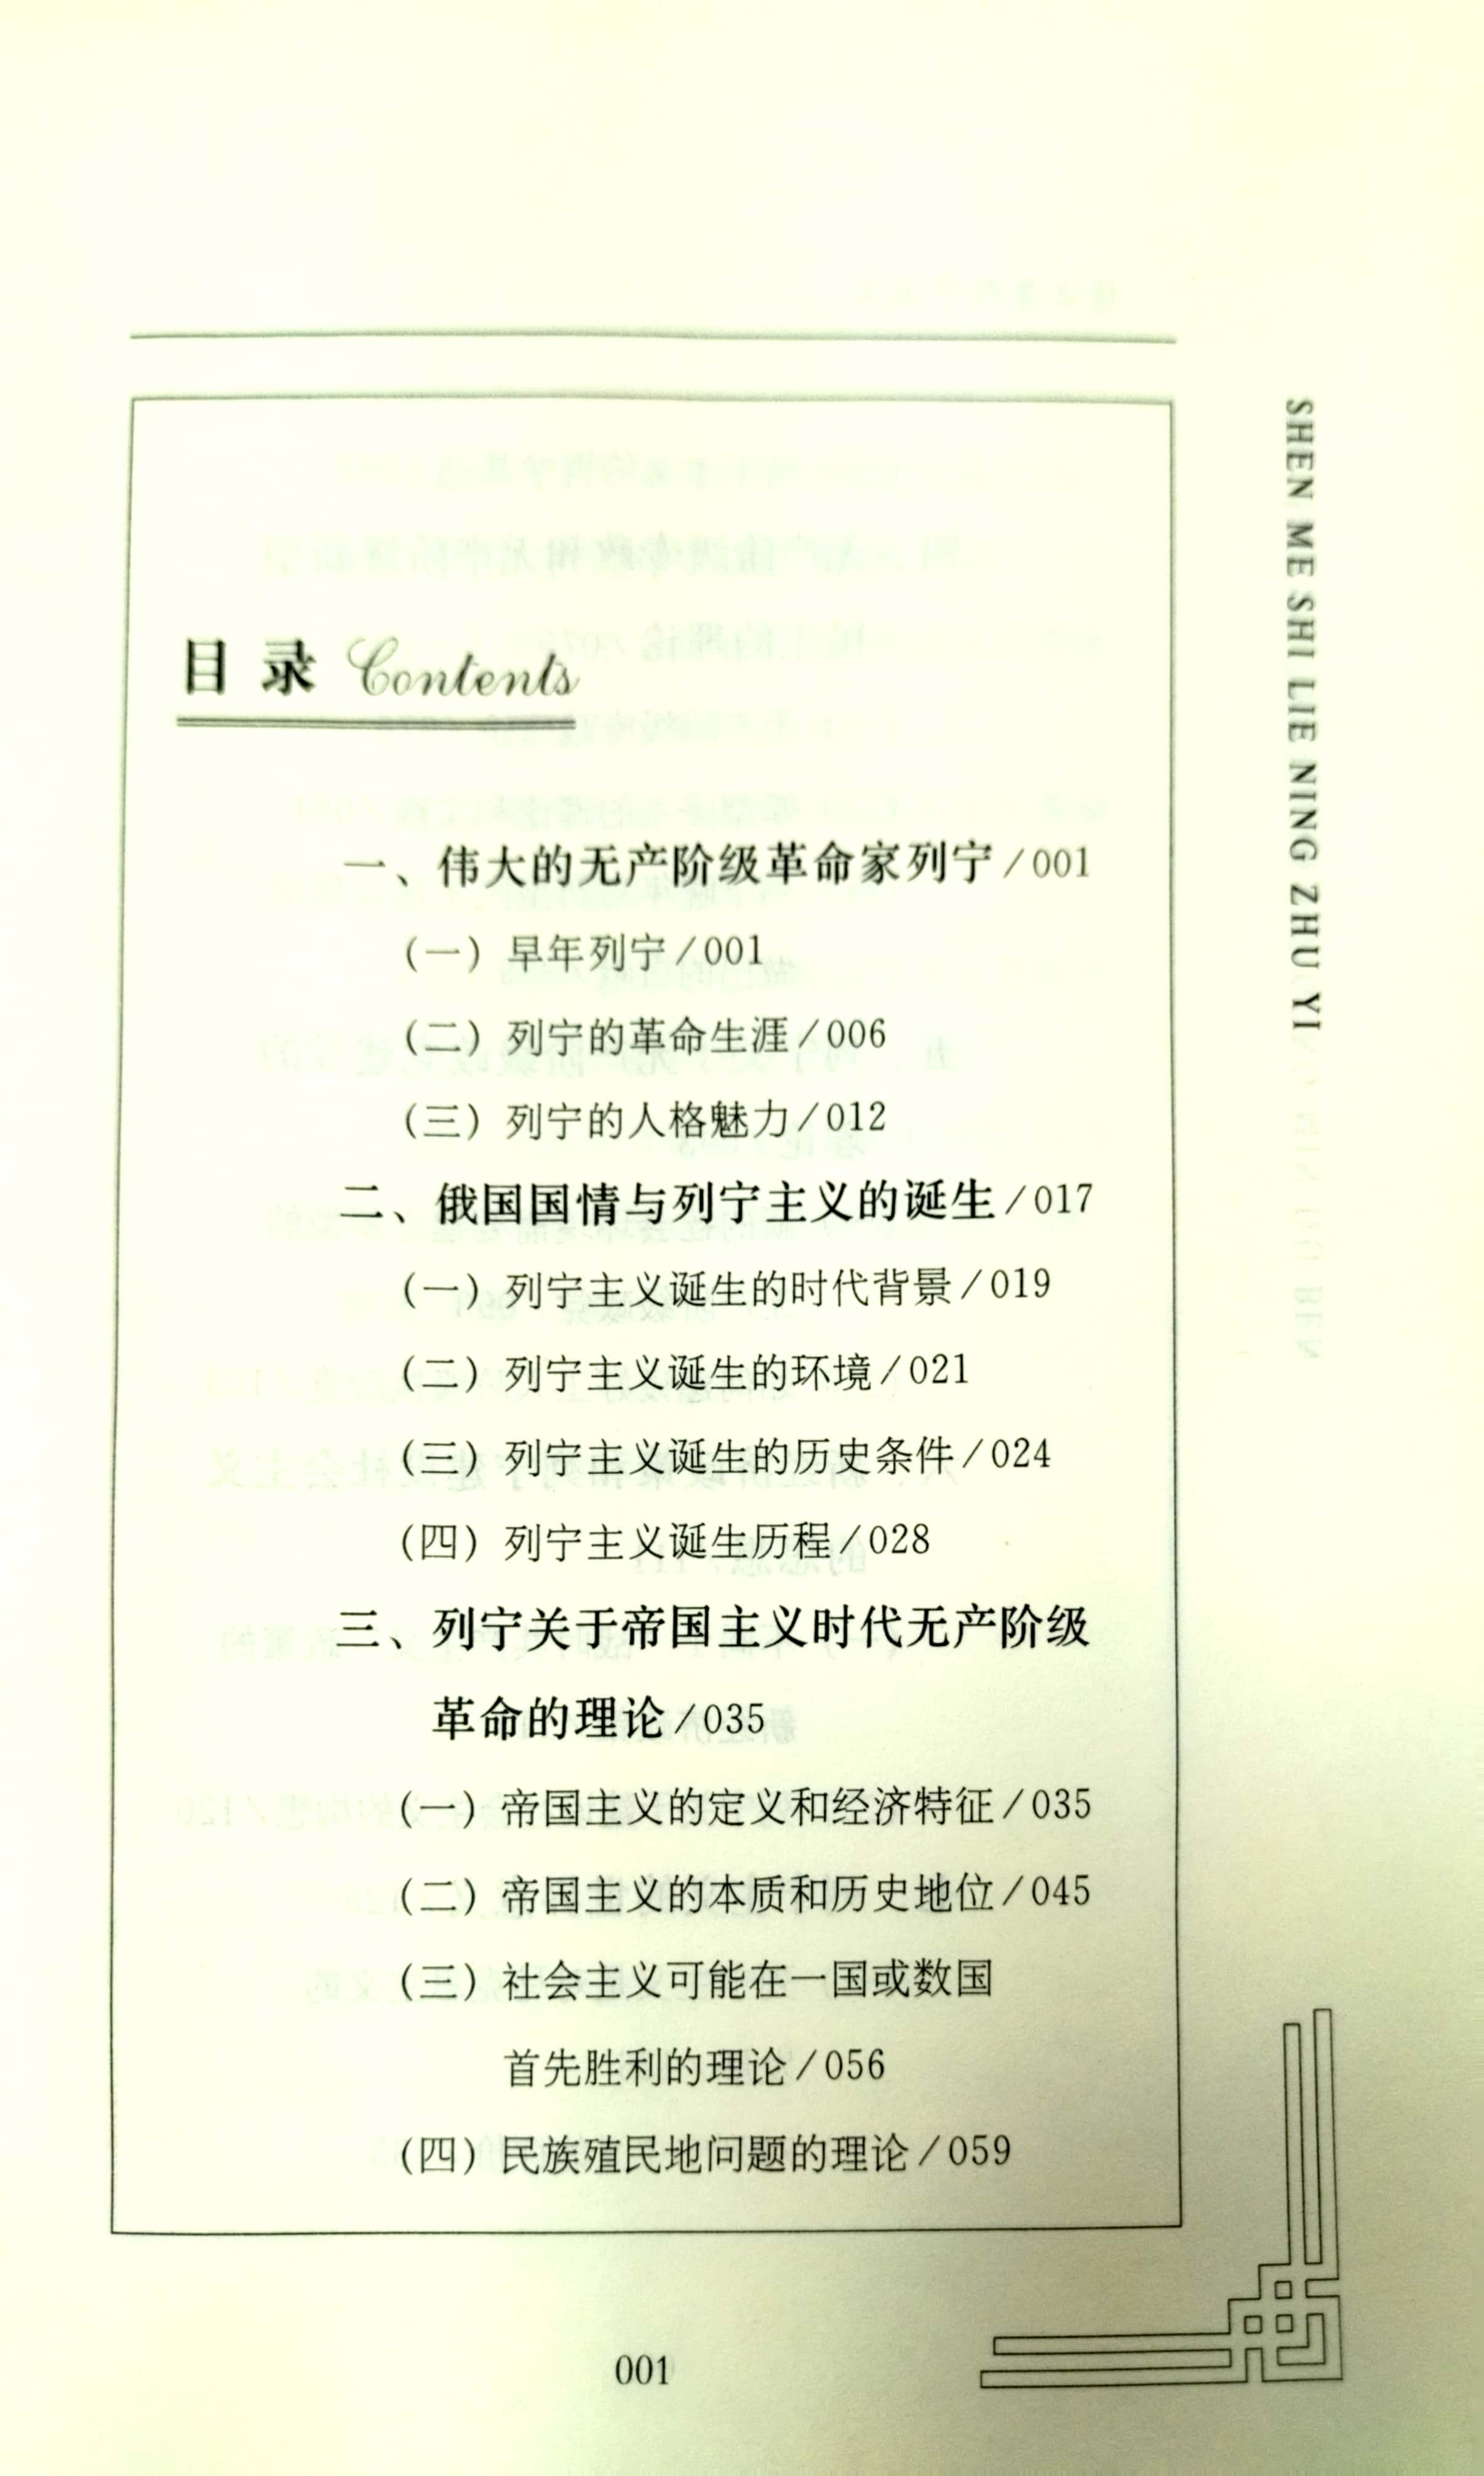 目录 Contents
一、伟大的无产阶级革命家列宁/001
（一）早年列宁/001
（二）列宁的革命生涯/006
（三）列宁的人格魅力/012
二、俄国国情与列宁主义的诞生/017
（一）列宁主义诞生的时代背景/019
（二）列宁主义诞生的环境/021
（三）列宁主义诞生的历史条件/024
（四）列宁主义诞生历程/028
三、列宁关于帝国主义时代无产阶级
革命的理论/035
（一）帝国主义的定义和经济特征/035
（二）帝国主义的本质和历史地位/045
（三）社会主义可能在一国或数国
首先胜利的理论/056
（四）民族殖民地问题的理论/059
001
SHEN ME SHI LIE NING ZHU YI